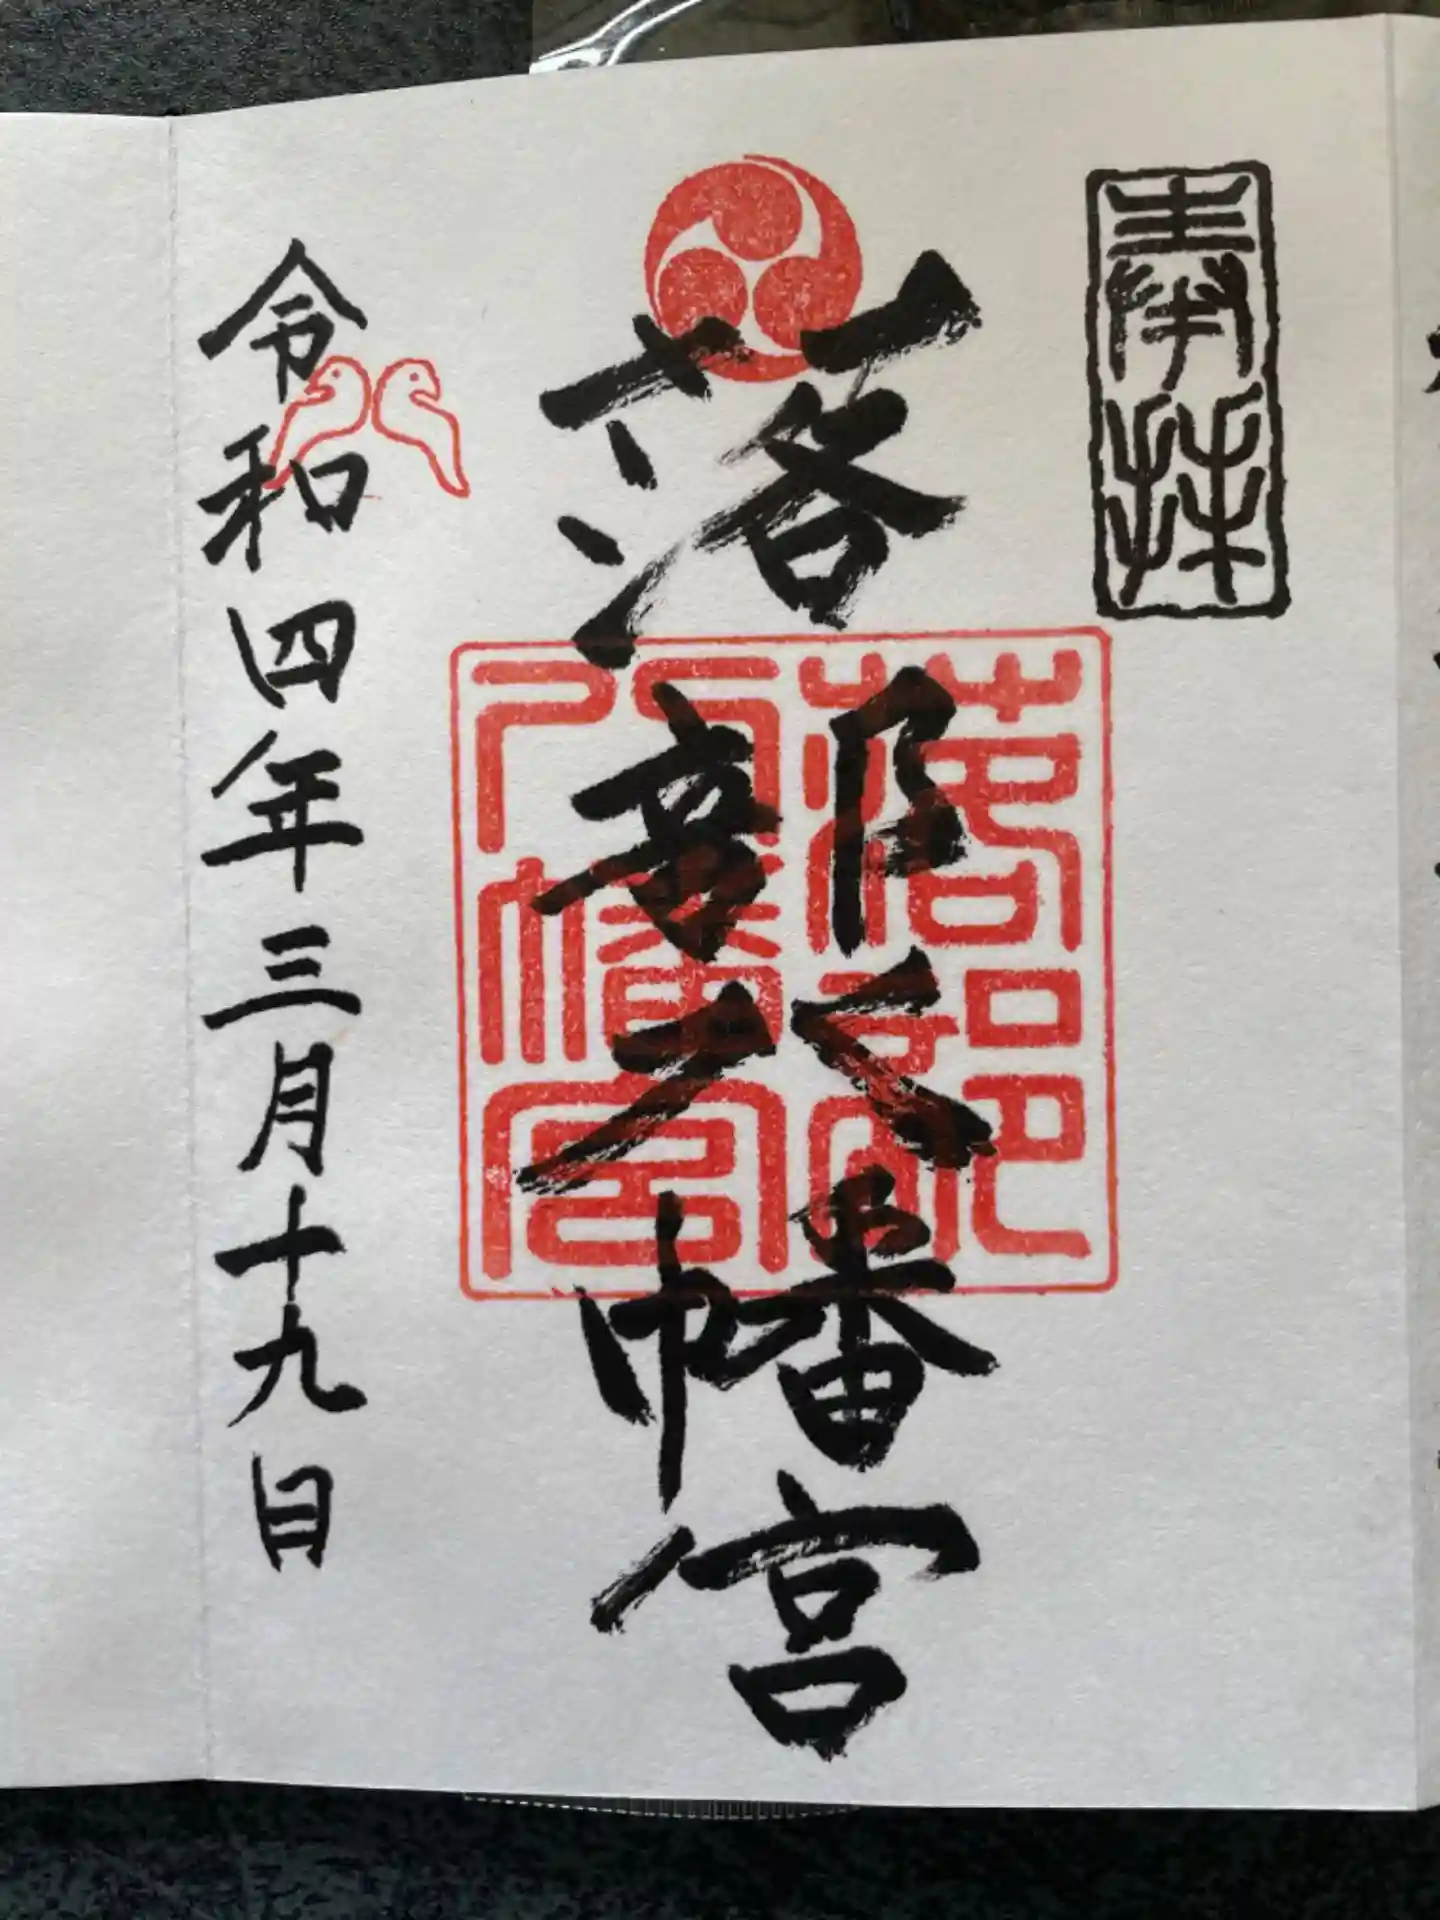 奉拝
落部八幡宮
落部八幡宮
令和四年三月十九日